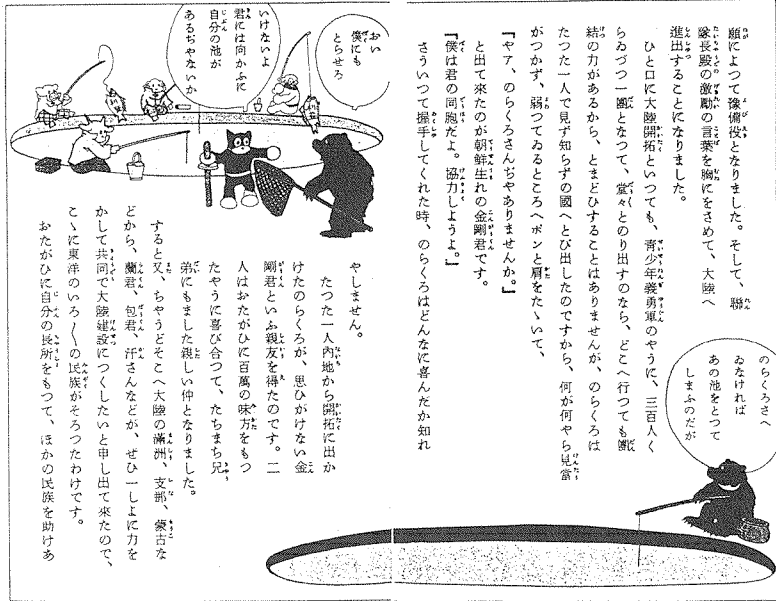 願によつて豫備役となりました。そして、聯
隊長殿の激勵の言葉を胸にをさめて、大陸へ
進出することになりました。
ひと口に大陸開拓といつても、青少年義勇軍のやうに、三百人く
らゐづつ一團となつて、堂々とのり出すのなら、どこへ行つても團
結の力があるから、とまどひすることはありませんが、のらくろは
たつた一人で見ず知らずの國へとび出したのですから、何が何やら見當
がつかず、弱つてゐるところへポンと肩をたゝいて、
『ヤア、のらくろさんぢやありませんか。』
と出て來たのが朝鮮生れの金剛君です。
『僕は君の同胞だよ。協力しようよ。』
さういつて握手してくれた時、のらくろはどんなに喜んだか知れ
のらくろさへ
ゐなければ
あの池をとつて
しまふのだが
おい
僕にも
とらせろ
いけないよ
君には向かふに
自分の池が
あるぢやないか
やしません。
たつた一人內地から開拓に出か
けたのらくろが、思ひがけない金
剛君といふ親友を得たのです。二
人はおたがひに百萬の味方をもつ
たやうに喜び合つて、たちまち兄
弟にもました親しい仲となりました。
すると又、ちやうどそこへ大陸の滿洲、支那、蒙古な
どから、蘭君、包君、汗さんなどが、ぜひ一しよに力を
かして共同で大陸建設につくしたいと申し出て來たので、
こゝに東洋のいろ〳〵の民族がそろつたわけです。
おたがひに自分の長所をもつて、ほかの民族を助けあ